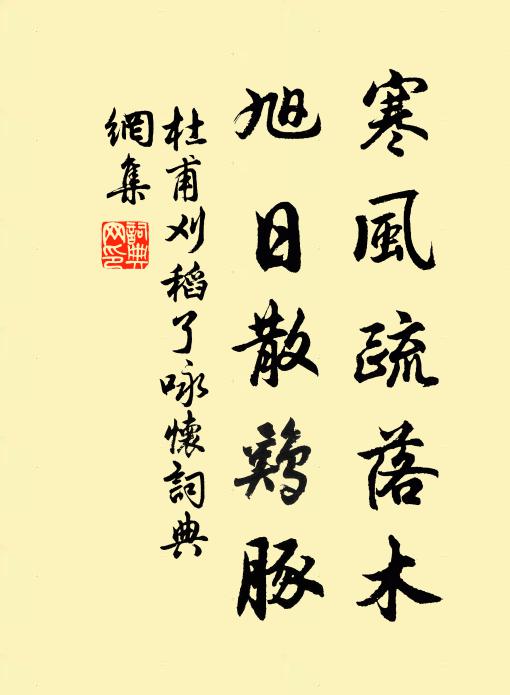 寒風疏落木
旭日散鷄豚
杜甫刈稻了咏懷詞典
網集
詞典網印